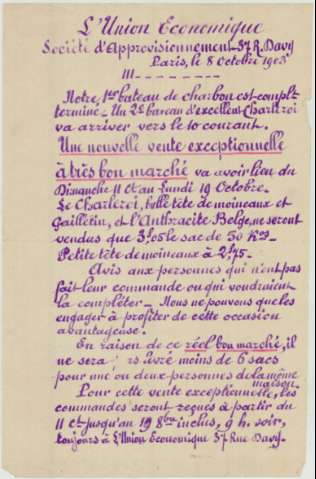 L'Union Economique
Société d'Approvisionnement_37 R. Davy
Paris, le 8 Octobre 1903
Notre 1er bateau de charbon est complt
terminé _ Un 2e bateau d'excellent Charleroi
va arriver vers le 10 courant.
Une nouvelle vente exceptionnelle
à très bon marché va avoir lieu du
Dimanche 11 ct au Lundi 19 Octobre.
Le Charleroi, belle tête de moineaux et
Gailletin, et l'Anthracite Belge, ne seront
vendus que 3f,05 le sac de 50 Kos_
Petite tête de moineaux à 2f,75.
Avis aux personnes qui n'ont pas
fait leur commande ou qui voudraient
la compléter _ Nous ne pouvons que les
engager à profiter de cette occasion
avantageuse.
En raison de ce réel bon marché, il
ne sera livré moins de 6 sacs
pour une ou deux personnes de la même
maison.
Pour cette vente exceptionnelle, les
commandes seront reçues à partir du
11 ct jusqu'au 19 8bre inclus, 9 h. soir,
toujours à L'Union Economique 37 Rue Davy.